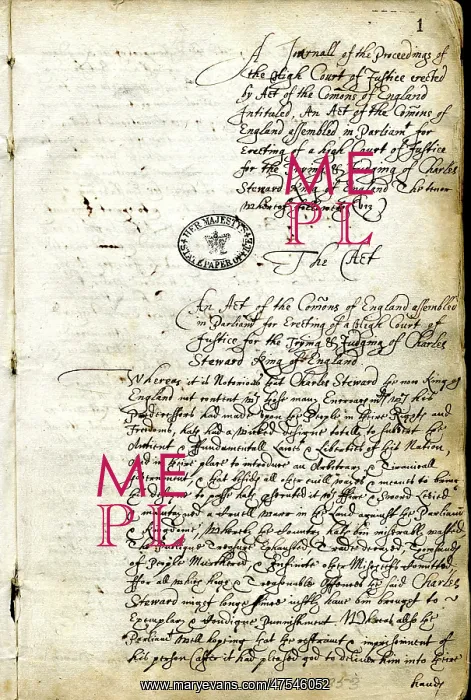 1
A Journall of the Proceedings of
the High Court of Justice erected
by Act of the Comons of England
Intituled, An Act of the Comons of
England assembled in Parliamt for
Erecting of a high Court of Justice
for the Trying & Judging of Charles
Steward King of England The tenor
whereof followeth (Viz)
ME
PL
HER MAJESTY'S
STATE PAPER OFFICE
The Act
An Act of the Comons of England assembled
in Parliamt for Erecting of a High Court of
Justice for the Trying & Judging of Charles
Steward King of England
Whereas it is Notorious that Charles Steward the now King of
England not content wth those many Encroachmts wch his
Predecessors had made upon the People in their Rights and
Freedoms, hath had a Wicked designe totally to subvert the
Antient & Fundamentall Lawes & Liberties of this Nation,
And in their place to introduce an Arbitrary & Tirannicall
Government, & that besides all other evill wayes & meanes to bring
ME
PL
to passe hath
& maintayned a Cruell Warr in the Land against the Parliamt
& Kingdome, Whereby the Country hath bin miserably wasted
The Publique Treasure Exhausted Trade decayed, Thousands
of People Murthered & Infinite other Mischeifes Comitted
for all which high & Treasonable Offences the said Charles
Steward might long since justly have bin brought to
Exemplary & Condigne Punnishment Whereas also the
Parliamt well hoping that the restraint & imprisonment of
his person (after it had pleased god to deliver him into their
hands
www.maryevans.com/47546052